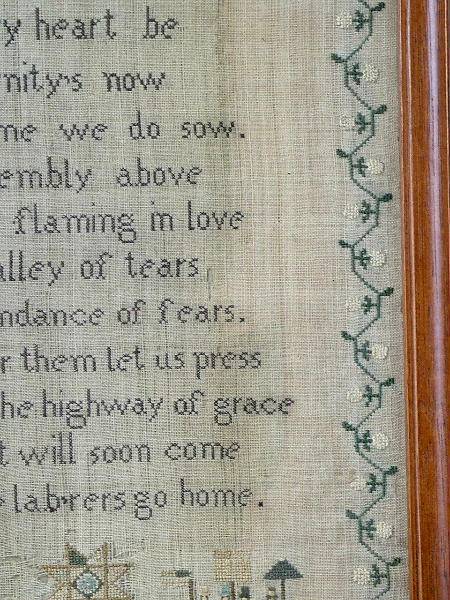 y heart be
rnity's now
me we do sow.
embly above
flaming in love
alley of tears,
ndance of fears.
r them let us press
he highway of grace
t will soon come
e lab'rers go home.